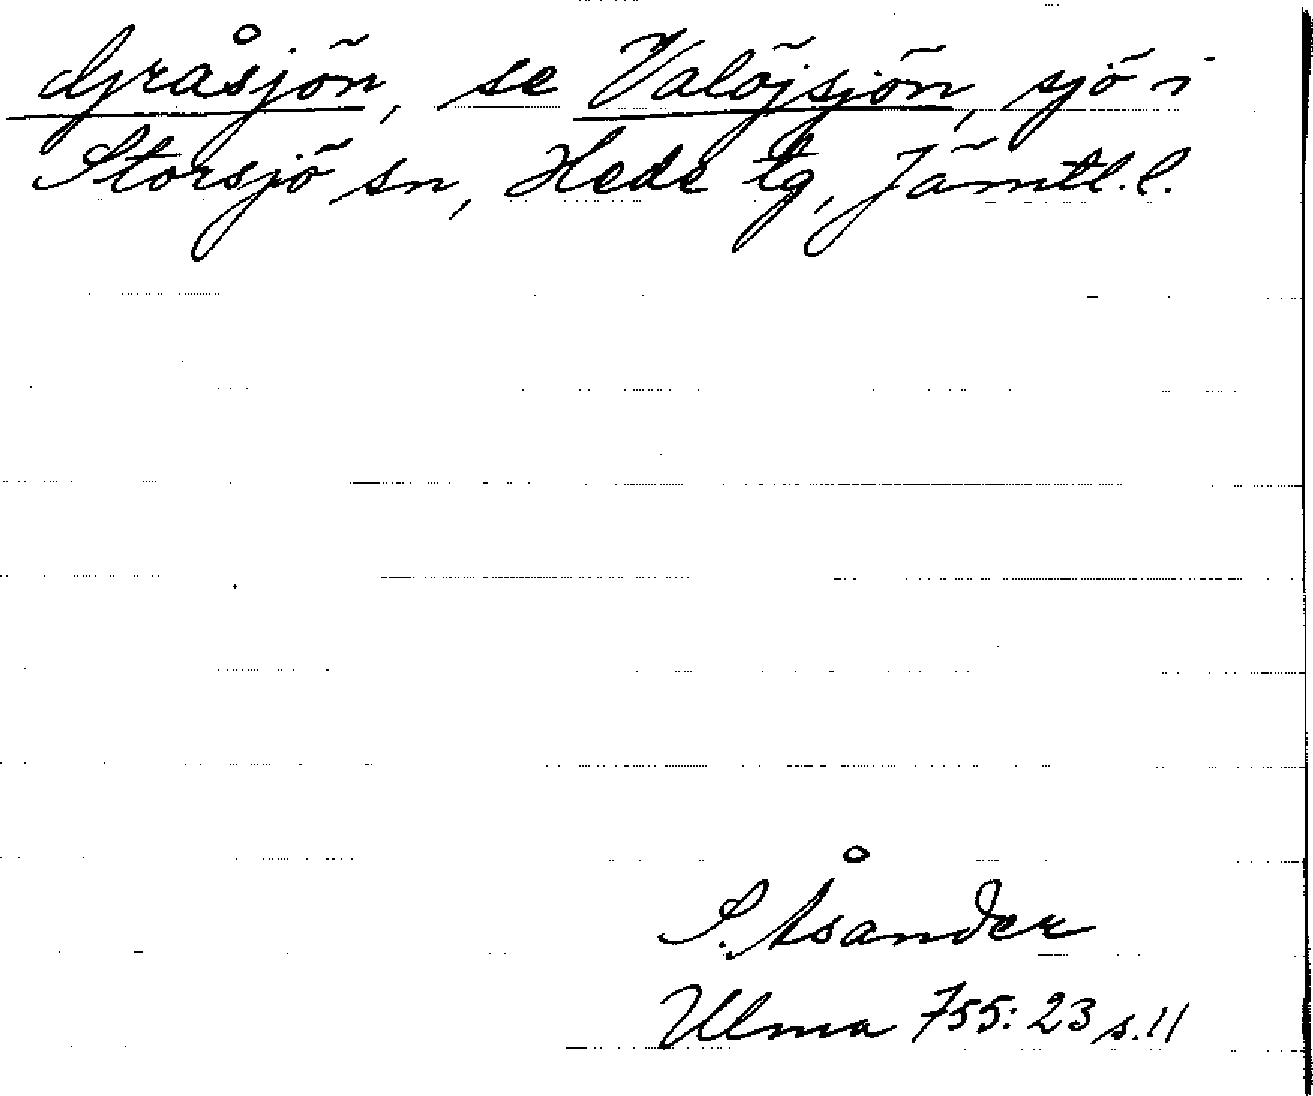 Gråsjön, se Valöjsjön, sjö i
Storsjö sn, Hede tg, Jämtl.l.
S. Åsander
Ulma 755:23 s.11